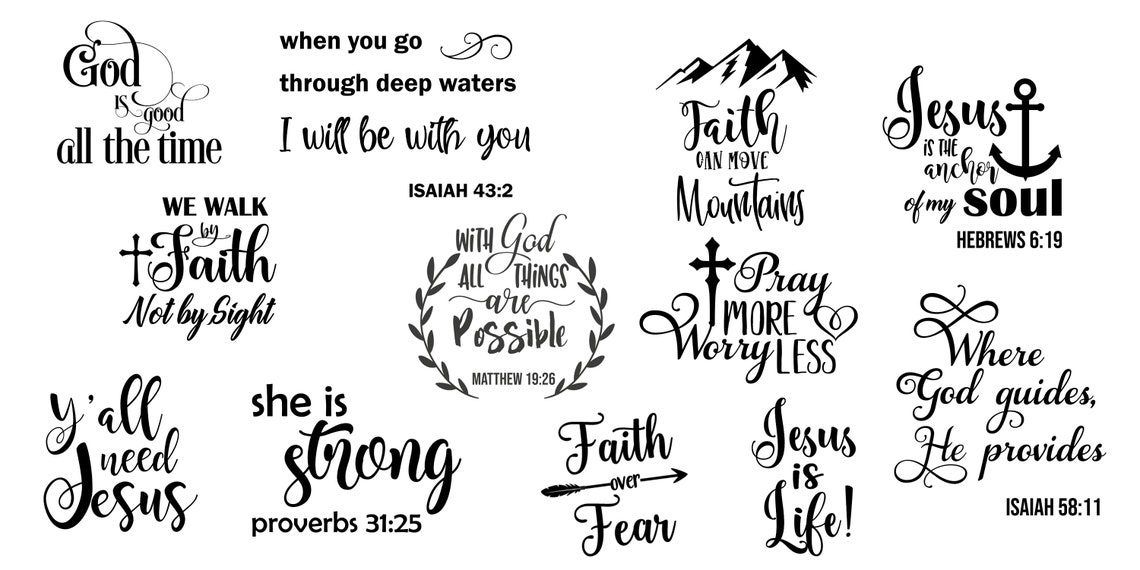 God
is good
all the time
when you go
through deep waters
I will be with you
ISAIAH 43:2
Faith
CAN MOVE
Mountains
Jesus
IS THE
anchor
of my soul
HEBREWS 6:19
WE WALK
by
Faith
Not by Sight
WITH God
ALL THINGS
are
Possible
MATTHEW 19:26
Pray
MORE
Worry LESS
Where
God guides,
He provides
ISAIAH 58:11
y'all
need
Jesus
she is
strong
proverbs 31:25
Faith
over
Fear
Jesus
is
Life!